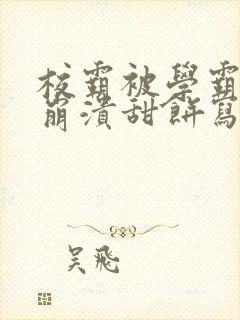 校霸被學霸
崩潰甜餅寫
吳飛